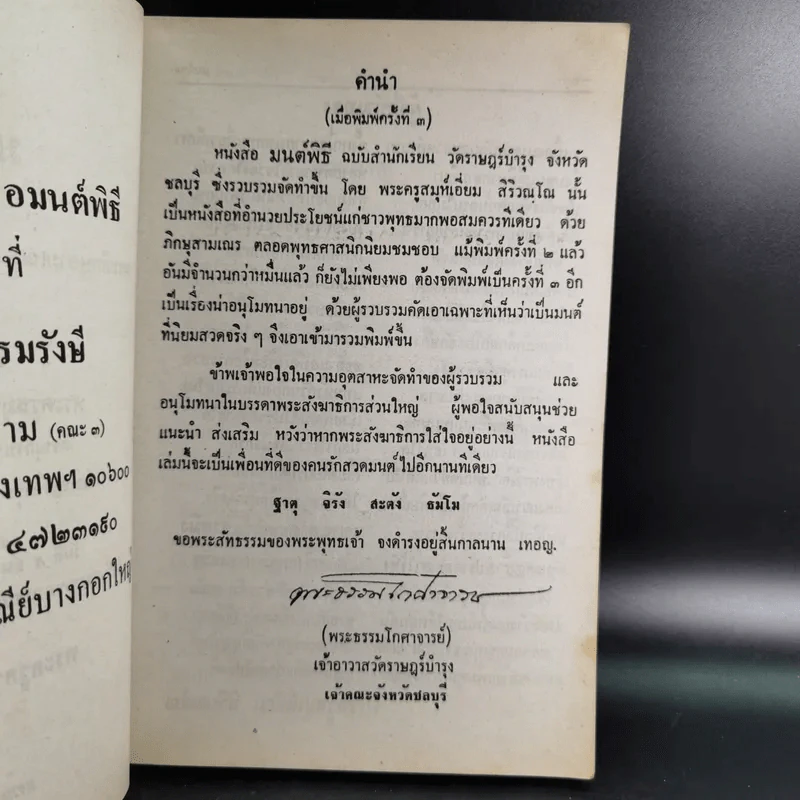 อมนต์พิธี
ที่
รมรังษี
าม (คณะ ๓)
งเทพฯ ๑๐๖๐๐
๔๗๒๓๑๙๐
ณีย์บางกอกใหญ่
คำนำ
(เมื่อพิมพ์ครั้งที่ ๓)
หนังสือ มนต์พิธี ฉบับสำนักเรียน วัดราษฎร์บำรุง จังหวัด
ชลบุรี ซึ่งรวบรวมจัดทำขึ้น โดย พระครูสมุห์เอี่ยม สิริวณฺโณ นั้น
เป็นหนังสือที่อำนวยประโยชน์แก่ชาวพุทธมากพอสมควรทีเดียว ด้วย
ภิกษุสามเณร ตลอดพุทธศาสนิกนิยมชมชอบ แม้พิมพ์ครั้งที่ ๒ แล้ว
อันมีจำนวนกว่าหมื่นแล้ว ก็ยังไม่เพียงพอ ต้องจัดพิมพ์เป็นครั้งที่ ๓ อีก
เป็นเรื่องน่าอนุโมทนาอยู่ ด้วยผู้รวบรวมคัดเอาเฉพาะที่เห็นว่าเป็นมนต์
ที่นิยมสวดจริง ๆ จึงเอาเข้ามารวมพิมพ์ขึ้น
ข้าพเจ้าพอใจในความอุตสาหะจัดทำของผู้รวบรวม และ
อนุโมทนาในบรรดาพระสังฆาธิการส่วนใหญ่ ผู้พอใจสนับสนุนช่วย
แนะนำ ส่งเสริม หวังว่าหากพระสังฆาธิการใส่ใจอยู่อย่างนี้ หนังสือ
เล่มนี้จะเป็นเพื่อนที่ดีของคนรักสวดมนต์ไปอีกนานทีเดียว
ฐาตุ จิรัง สะตัง ธัมโม
ขอพระสัทธรรมของพระพุทธเจ้า จงดำรงอยู่สิ้นกาลนาน เทอญ.
พระธรรมโกศาจารย์
(พระธรรมโกศาจารย์)
เจ้าอาวาสวัดราษฎร์บำรุง
เจ้าคณะจังหวัดชลบุรี